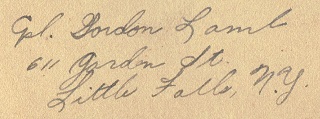 Cpl. Gordon Lamb
611 Garden St.
Little Falls, N.Y.